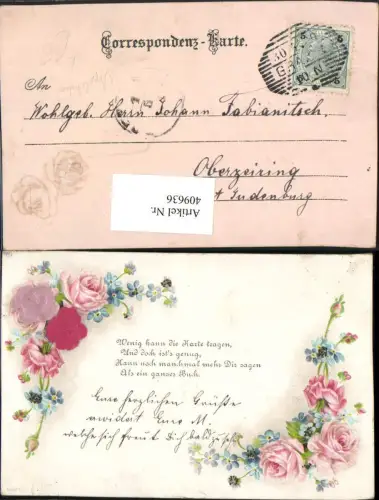 Correspondenz-Karte.
5 5
30
G
An
Wohlgeb. Herrn Johann Fabianitsch,
Oberzeiring
Judenburg
Artikel Nr.
409636
Wenig kann die Karte tragen,
Und doch ist's genug,
Kann noch manchmal mehr Dir sagen
Als ein ganzes Buch.
herzlichen Grüße
M.
welche sich freut Dich bald zu seh